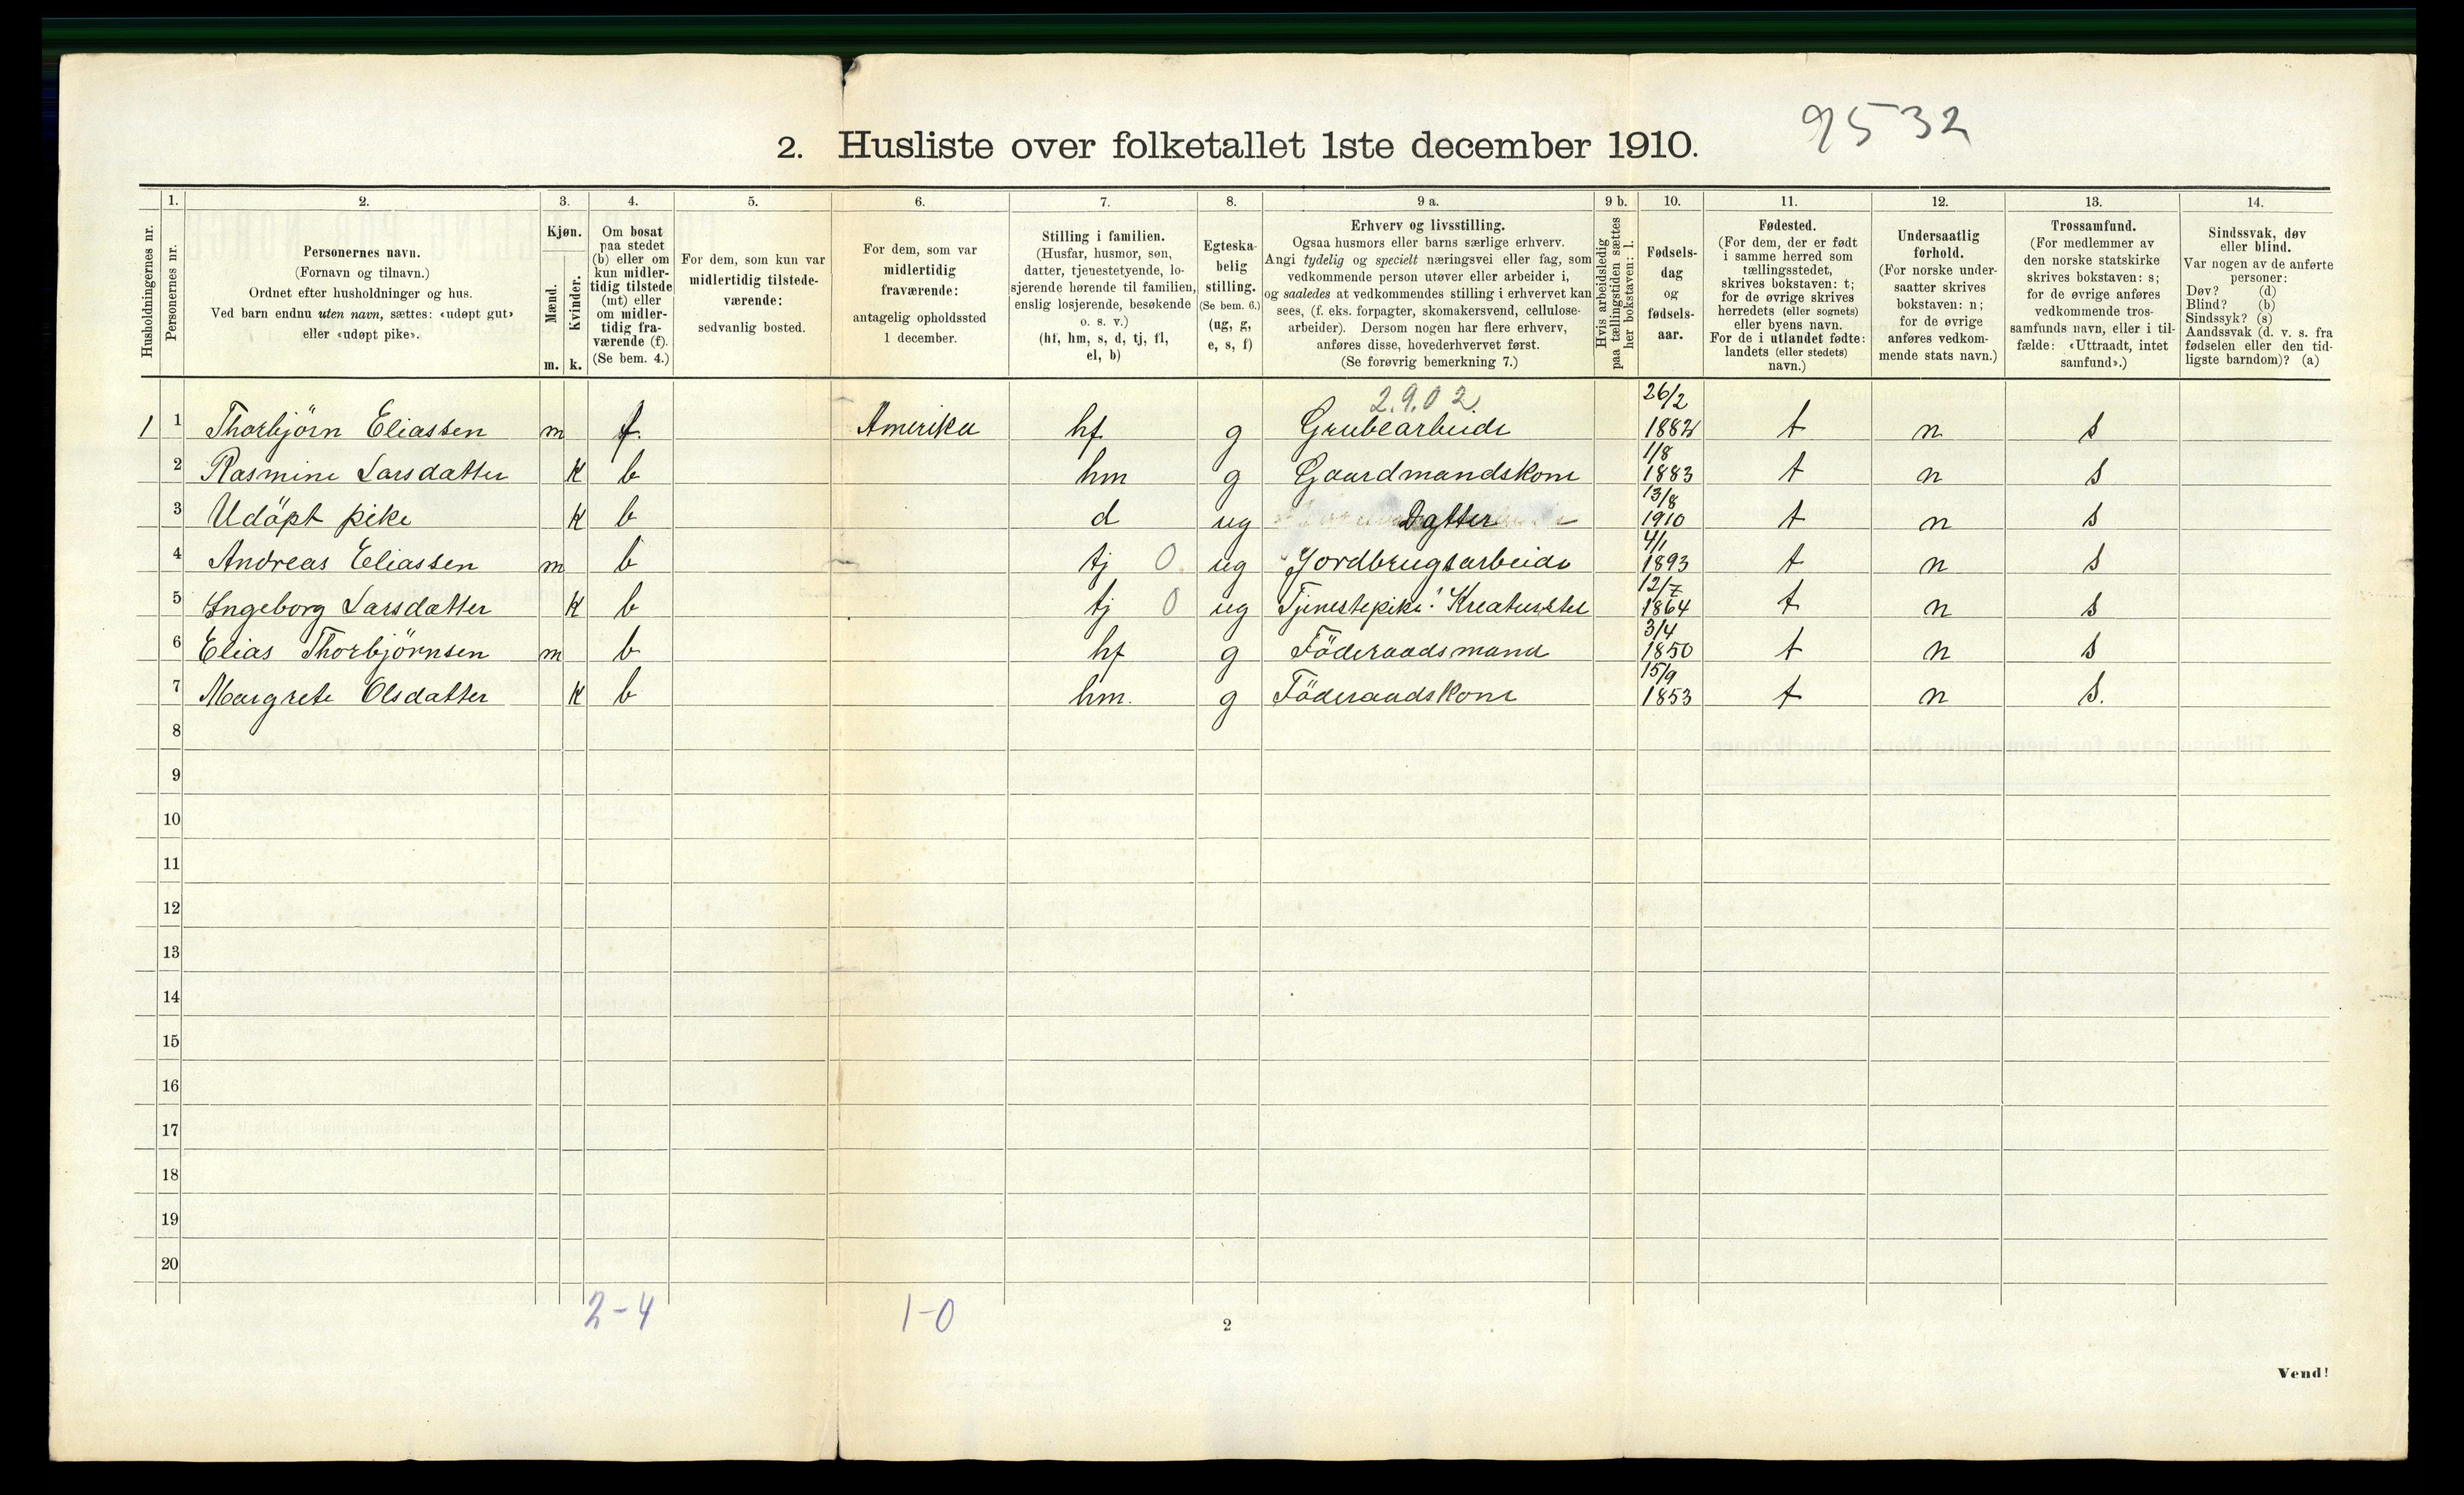 9532
2. Husliste over folketallet 1ste december 1910.
Husholdningernes nr.
1.
Personernes nr.
2.
Personernes navn.
(Fornavn og tilnavn.)
Ordnet efter husholdninger og hus.
Ved barn endnu uten navn, sættes: «udøpt gut»
eller «udøpt pike».
3.
Kjøn.
Mænd.
m.
Kvinder.
k.
4.
Om bosat
paa stedet
(b) eller om
kun midler-
tidig tilstede
(mt) eller
om midler-
tidig fra-
værende (f).
(Se bem. 4.)
5.
For dem, som kun var
midlertidig tilstede-
værende:
sedvanlig bosted.
6.
For dem, som var
midlertidig
fraværende:
antagelig opholdssted
1 december.
7.
Stilling i familien.
(Husfar, husmor, søn,
datter, tjenestetyende, lo-
sjerende hørende til familien,
enslig losjerende, besøkende
o. s. v.)
(hf, hm, s, d, tj, fl,
el, b)
8.
Egteska-
belig
stilling.
(Se bem. 6.)
(ug, g,
e, s, f)
9 a.
Erhverv og livsstilling.
Ogsaa husmors eller barns særlige erhverv.
Angi tydelig og specielt næringsvei eller fag, som
vedkommende person utøver eller arbeider i,
og saaledes at vedkommendes stilling i erhvervet kan
sees, (f. eks. forpagter, skomakersvend, cellulose-
arbeider). Dersom nogen har flere erhverv,
anføres disse, hovederhvervet først.
(Se forøvrig bemerkning 7.)
9 b.
Hvis arbeidsledig
paa tællingstiden sættes
her bokstaven: l.
10.
Fødsels-
dag
og
fødsels-
aar.
11.
Fødested.
(For dem, der er født
i samme herred som
tællingsstedet,
skrives bokstaven: t;
for de øvrige skrives
herredets (eller sognets)
eller byens navn.
For de i utlandet fødte:
landets (eller stedets)
navn.)
12.
Undersaatlig
forhold.
(For norske under-
saatter skrives
bokstaven: n;
for de øvrige
anføres vedkom-
mende stats navn.)
13.
Trossamfund.
(For medlemmer av
den norske statskirke
skrives bokstaven: s;
for de øvrige anføres
vedkommende tros-
samfunds navn, eller i til-
fælde: «Uttraadt, intet
samfund».)
14.
Sindssvak, døv
eller blind.
Var nogen av de anførte
personer:
Døv? (d)
Blind? (b)
Sindssyk? (s)
Aandssvak (d. v. s. fra
fødselen eller den tid-
ligste barndom)? (a)
2.9.02. 26/2
1 1 Thorbjörn Eliassen m f. Amerika hf g Grubearbeide 1882 t n s
1/8
2 Rasmine Larsdatter K b hm g Gaardmandskone 1883 t n s
13/8
3 Udöpt pike K b d ug Datter 1910 t n s
4/1
4 Andreas Eliassen m b tj 0 ug Jordbrugsarbeide 1893 t n s
12/7
5 Ingeborg Larsdatter K b tj 0 ug Tjenestepike: Kreaturstel 1864 t n s
3/4
6 Elias Thorbjörnsen m b hf g Föderaadsmand 1850 t n s
15/9
7 Margrete Olsdatter K b hm. g Föderaadskone 1853 t n s.
8
9
10
11
12
13
14
15
16
17
18
19
20
2-4 1-0
2
Vend!